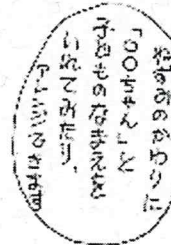 繪のあのかわりに
「〇〇ちゃん」と
子どものなまえを
いれてみたり、
アレンジできます